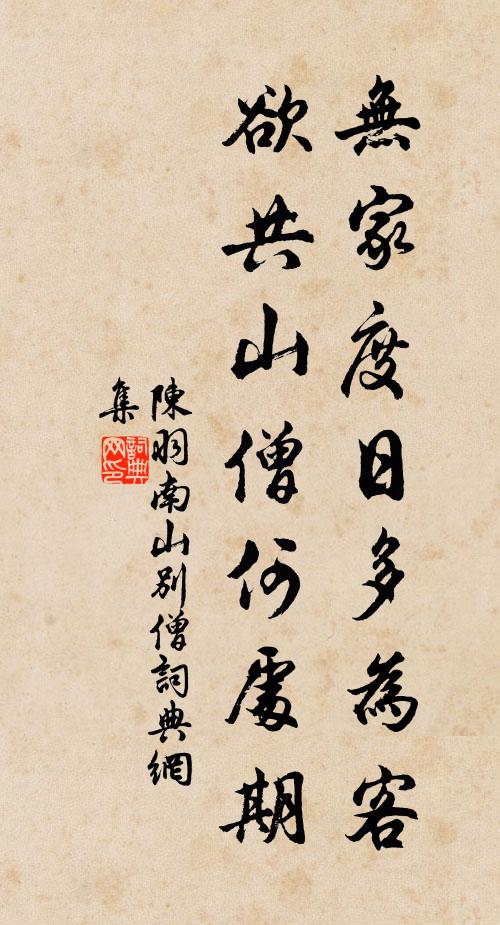 無家度日多為客
欲共山僧何處期
陳羽南山別僧詞典網
集
詞典
网印